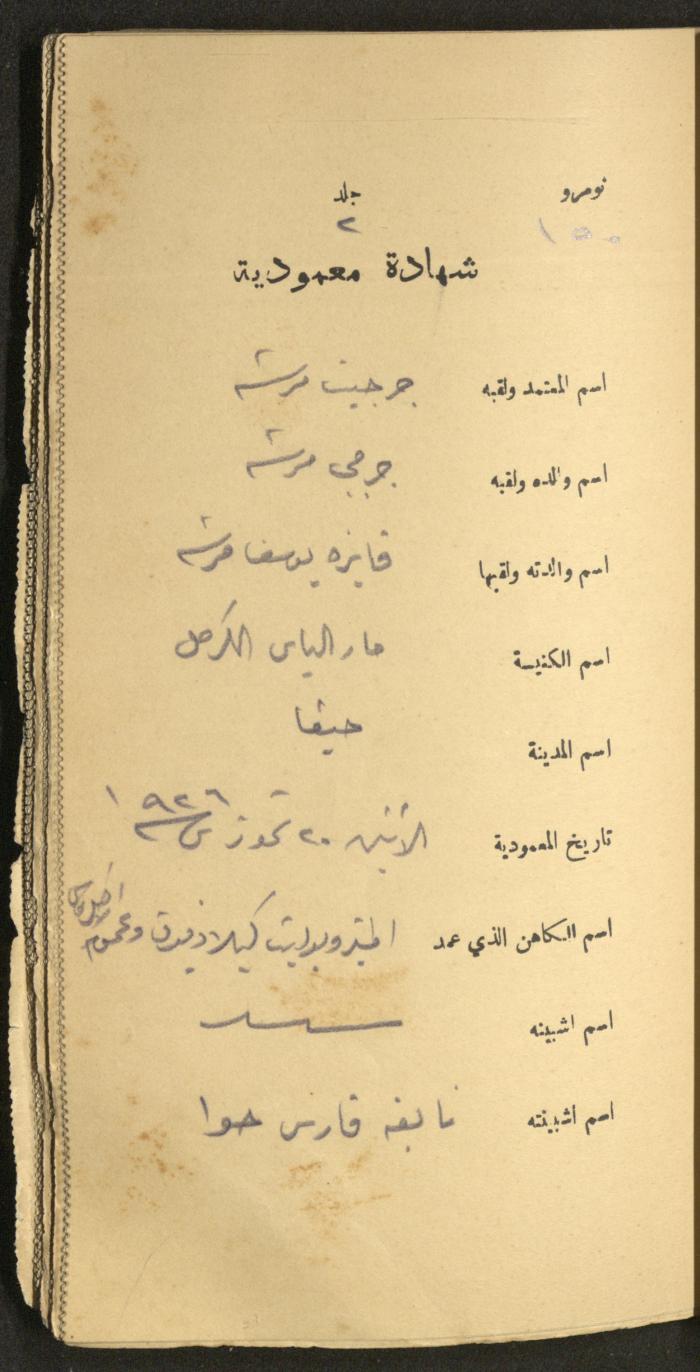 نومرو جلد
١٥٠ ٢
شهادة معمودية
اسم المعتمد ولقبه جرجيت مرشه
اسم والده ولقبه جرجي مرشه
اسم والدته ولقبها فايزه يوسف مرشه
اسم الكنيسة مار الياس الكرمل
اسم المدينة حيفا
تاريخ المعمودية الاثنين ٢٠ تموز سنة ١٩٢٦
اسم الكاهن الذي عمد المتروبوليت كيلاذيون وعموم
اسم اشبينه
اسم اشبينته نايفه فارس حوا